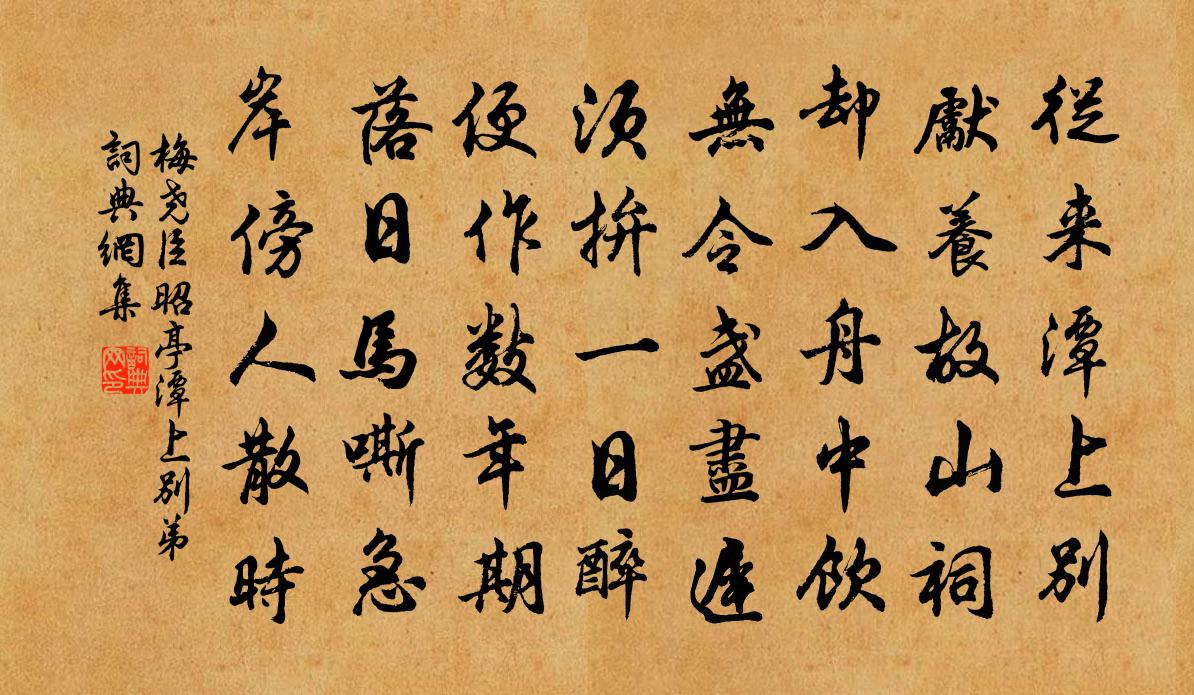 從来潭上别
獻養故山祠
却入舟中飲
無令盞盡遲
須拚一日醉
便作数年期
落日馬嘶急
岸傍人散時
梅尧臣昭亭潭上别弟
詞典網集
詞典
网印